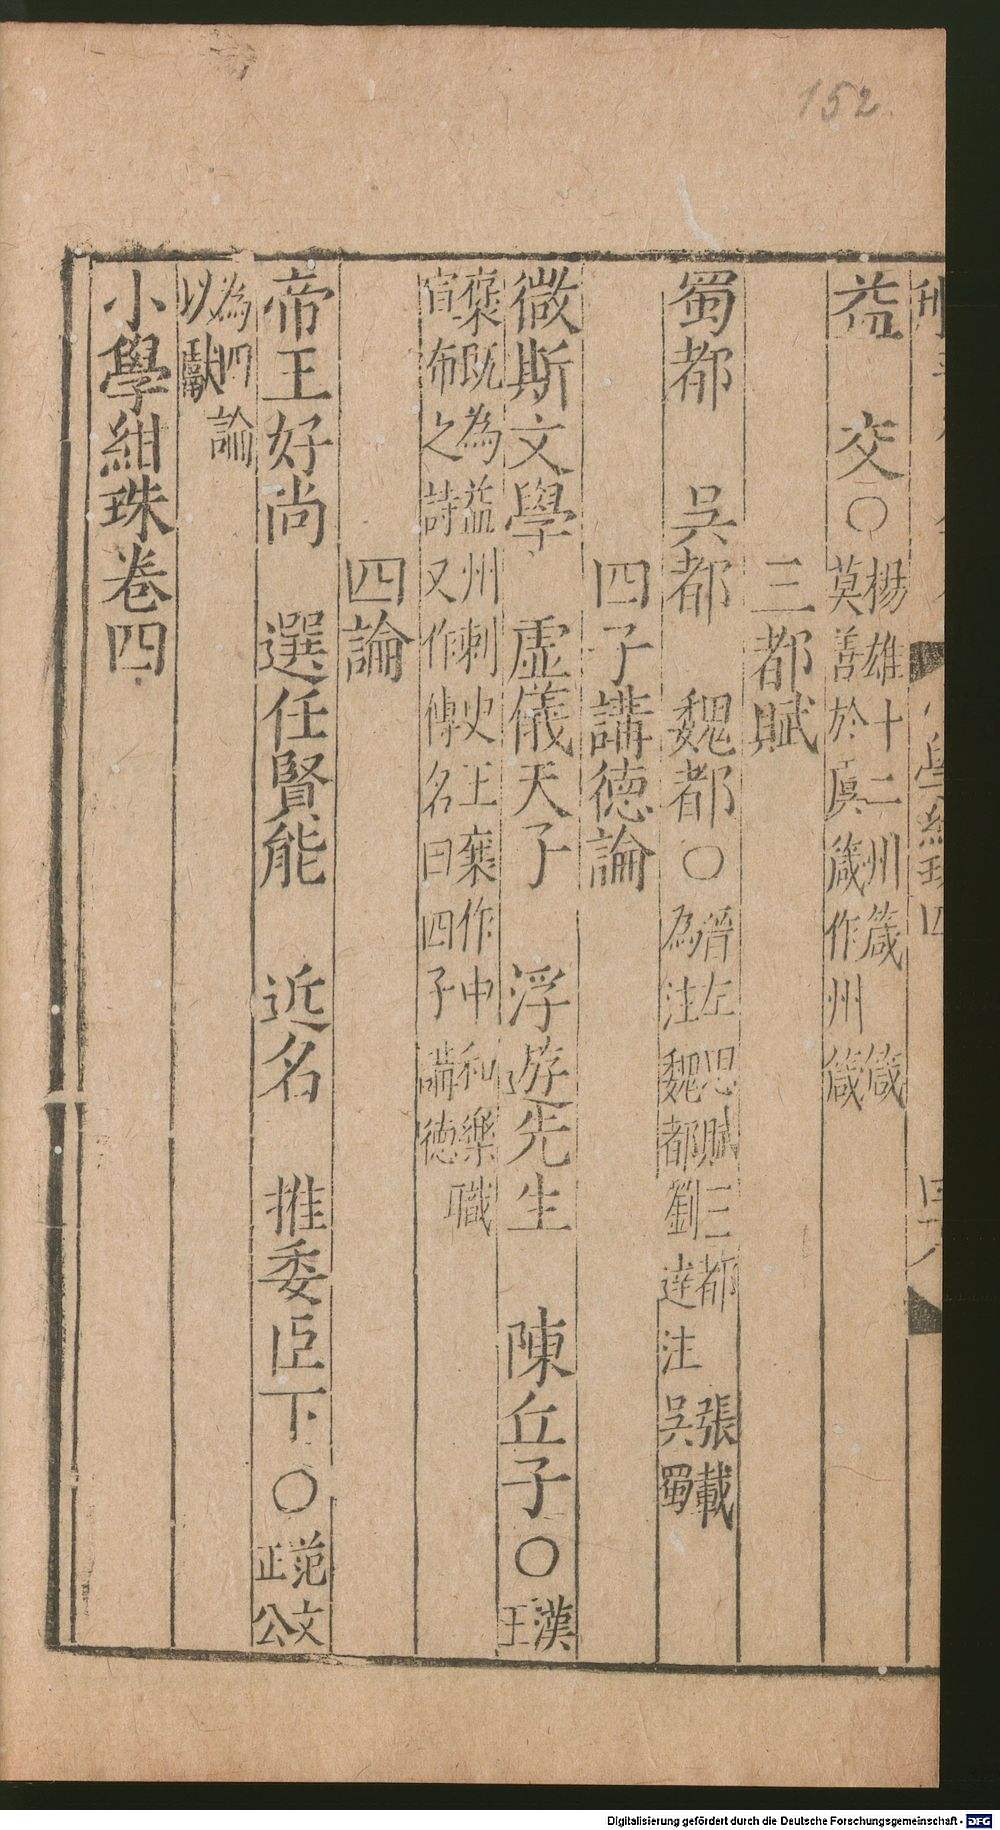 152
益　交○楊雄十二州箴　箴
莫善於虞箴作州箴
三都賦
蜀都　吳都　魏都○晉左思賦三都　張載
為注魏都劉逵注吳蜀
四子講德論
微斯文學　虛儀天子　浮遊先生　陳丘子○漢王
褒既為益州刺史王襄作中和樂職
宣布之詩又作傳名曰四子講德
四論
帝王好尚　選任賢能　近名　推委臣下○范文
正公
為四論
以獻
小學紺珠卷四
Digitalisierung gefördert durch die Deutsche Forschungsgemeinschaft - DFG